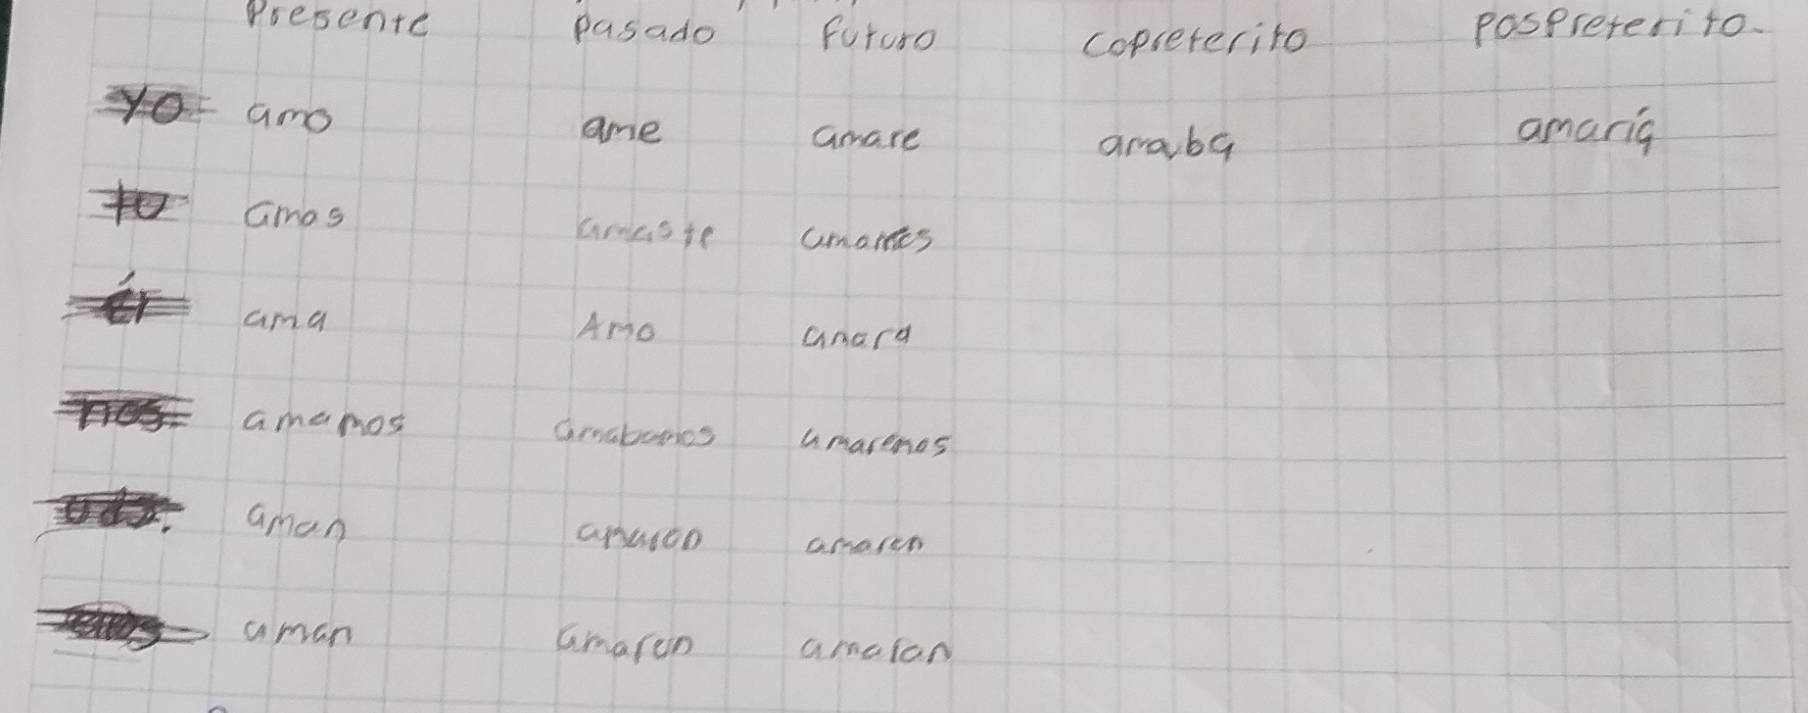 Presente pasado futuro copreterito pospreterito.
yo amo ame amare amaba amaría
tu amas amaste amares
él ama Amo amara
nos amamos amabamos amaremos
uds. aman amaron amaren
ellos aman amaron amaran